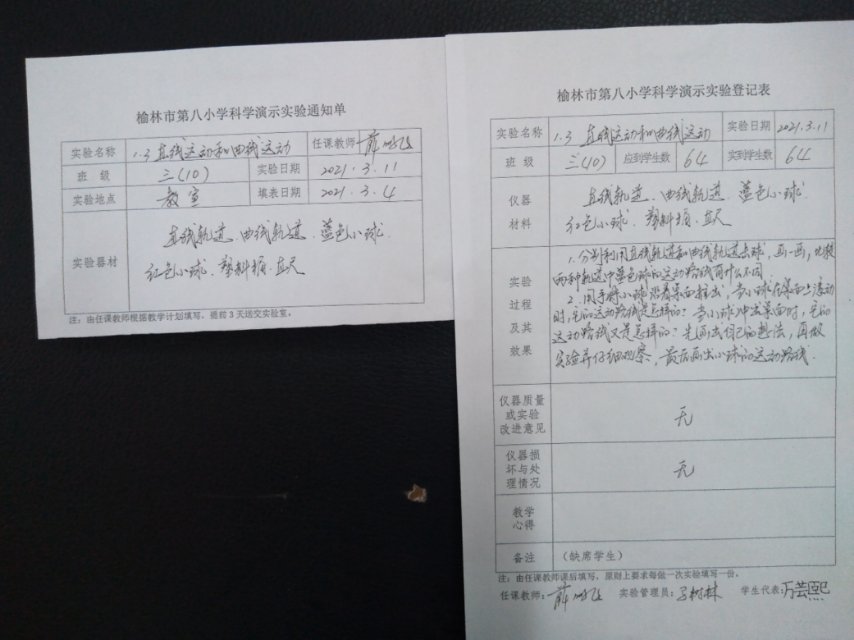 榆林市第八小学科学演示实验通知单
实验名称 1.3 直线运动和曲线运动 任课教师 薛
班 级 三(10) 实验日期 2021.3.11
实验地点 教室 填表日期 2021.3.4
实验器材
直线轨道、曲线轨道、蓝色小球
红色小球、塑料瓶、直尺
注：由任课教师根据教学计划填写，提前3天送交实验室。
榆林市第八小学科学演示实验登记表
实验名称 1.3 直线运动和曲线运动 实验日期 2021.3.11
班 级 三(10) 应到学生数 64 实到学生数 64
仪器
材料
直线轨道、曲线轨道、蓝色小球
红色小球、塑料瓶、直尺
实验
过程
及其
效果
1.分别利用直线轨道和曲线轨道击球，画一画，比较
两种轨道中蓝色球的运动路线有什么不同
2.用手将小球沿着桌面推出，当小球在桌面上滚动
时，它的运动路线是怎样的？当小球冲出桌面时，它的
运动路线又是怎样的？先画出自己的想法，再做
实验并仔细观察，最后画出小球的运动路线.
仪器质量
或实验
改进意见
无
仪器损
坏与处
理情况
无
教学
心得
备注 （缺席学生）
注：由任课教师课后填写，原则上要求每做一次实验填写一份。
任课教师：薛 实验管理员：马树林 学生代表：万芸熙